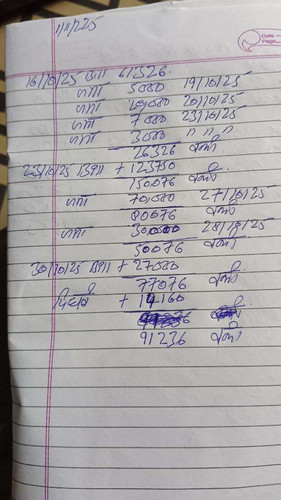 1/11/25
Date
Page
16/10/25 Bill 61326
जमा 5000 19/10/25
जमा 20,000 20/10/25
जमा 7000 23/10/25
जमा 3000 " " "
26326 बाकी
23/10/25 Bill + 123750
150076 बाकी
जमा 70,000 27/10/25
80076 बाकी
जमा 30,000 28/10/25
50076 बाकी
30/10/25 Bill + 27000
77076 बाकी
+ 14160
91236 बाकी